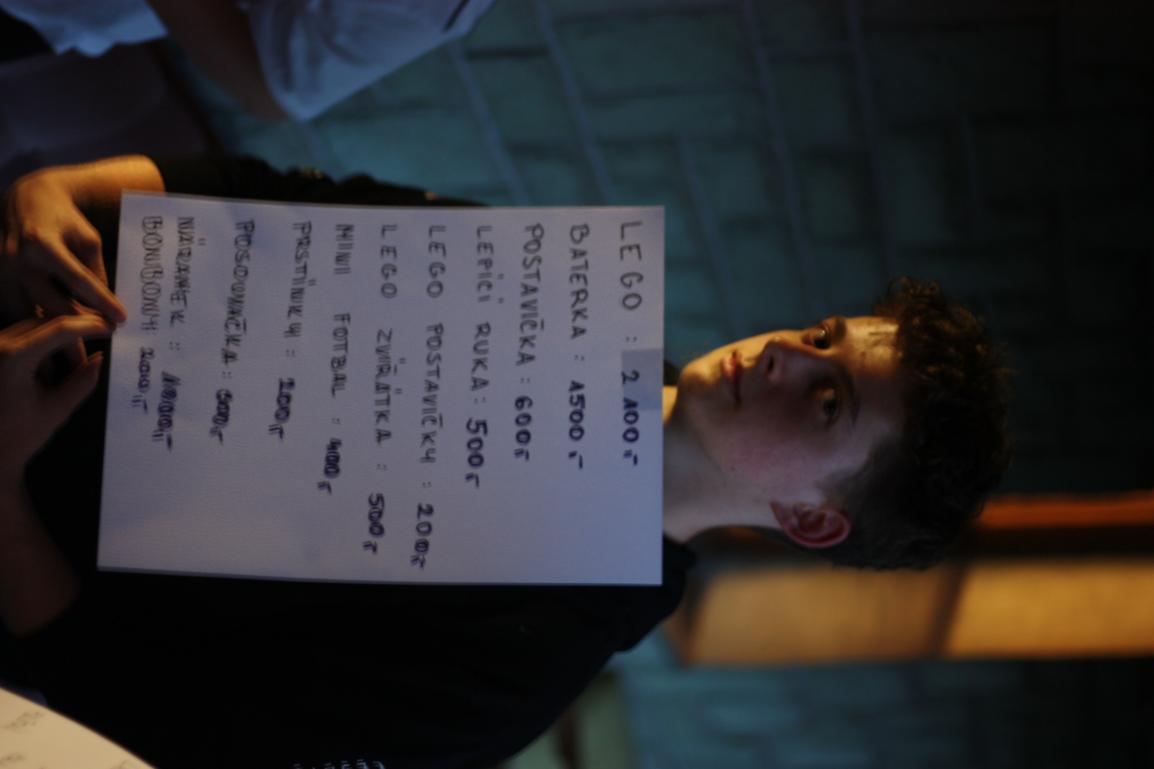 LEGO : 2 100,-
BATERKA : 1500,-
POSTAVIČKA : 600,-
LEPÍCÍ RUKA : 500,-
LEGO POSTAVIČKY : 200,-
LEGO ZVÍŘÁTKA : 500,-
MINI FOTBAL : 400,-
PRSTÍNKY : 200,-
POSOUVAČKA : 600,-
NÁRAMEK : 1000,-
BONIBONY 200,-